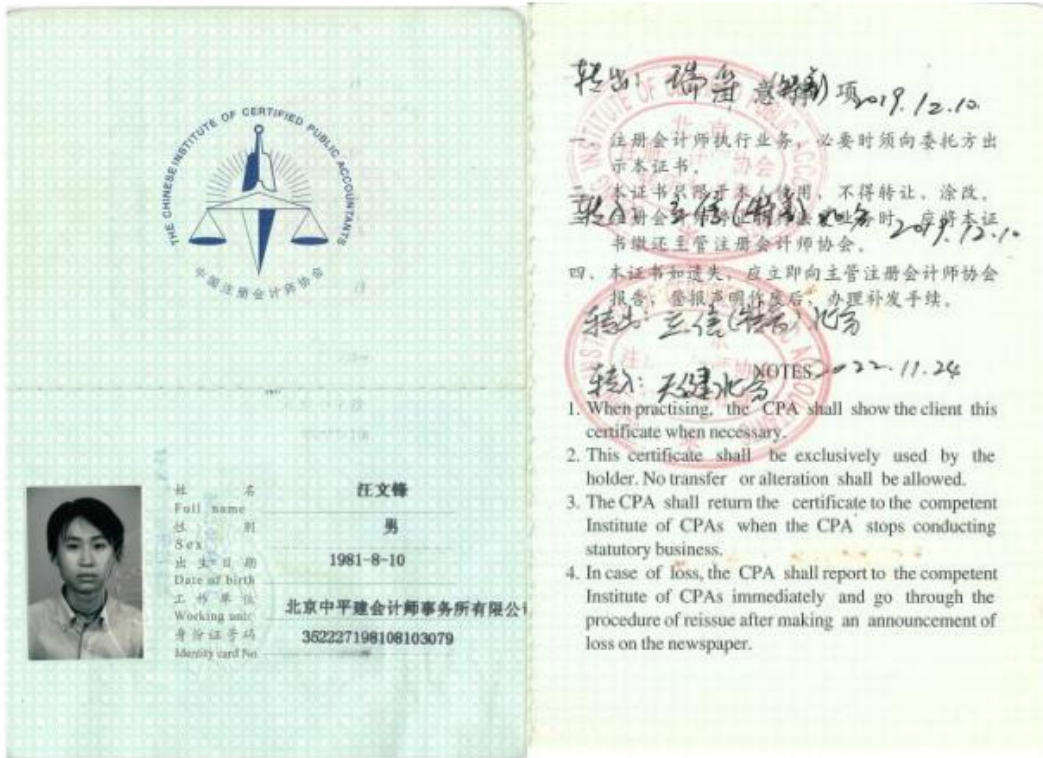 THE CHINESE INSTITUTE OF CERTIFIED PUBLIC ACCOUNTANTS
中国注册会计师协会
姓 名 汪文锋
Full name
性 别 男
Sex
出生日期 1981-8-10
Date of birth
工作单位 北京中平建会计师事务所有限公
Working unit
身份证号码 352227198108103079
Identity card No.
转出: 瑞 项 2019.12.10
一、注册会计师执行业务,必要时须向委托方出
示本证书。
二、本证书只限于本人使用,不得转让、涂改。
转入: 立信 2019.12.10
册会计 业务时,应将本证
书缴还主管注册会计师协会。
四、本证书如遗失,应立即向主管注册会计师协会
报告,登报声明作废后,办理补发手续。
转出: 立信
NOTES 2022.11.24
转入: 天健
1. When practising, the CPA shall show the client this
certificate when necessary.
2. This certificate shall be exclusively used by the
holder. No transfer or alteration shall be allowed.
3. The CPA shall return the certificate to the competent
Institute of CPAs when the CPA stops conducting
statutory business.
4. In case of loss, the CPA shall report to the competent
Institute of CPAs immediately and go through the
procedure of reissue after making an announcement of
loss on the newspaper.